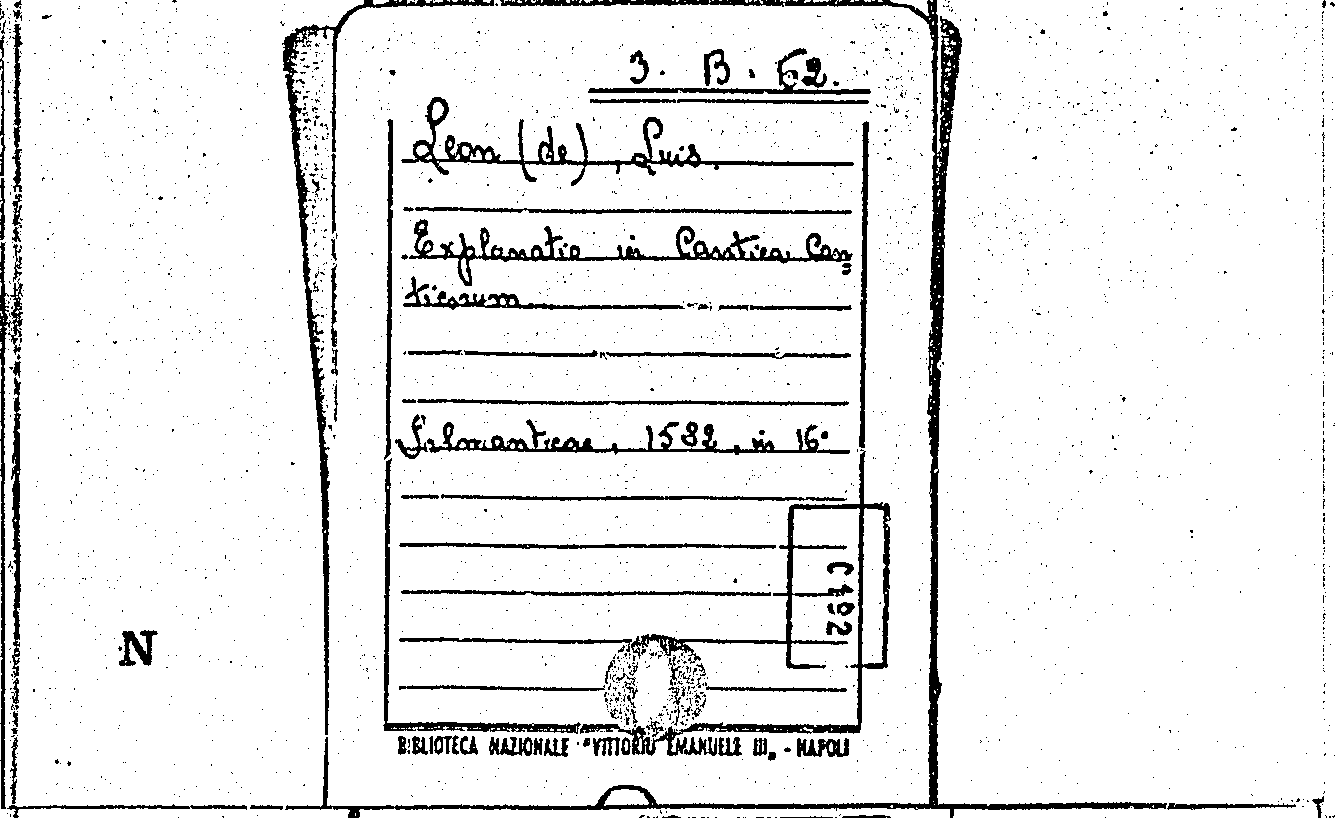 3. B. 62.
Leon (de), Luis.
Explanatio in Cantica Can=
ticorum
Salmanticae, 1582, in 16°
C492
N
BIBLIOTECA NAZIONALE "VITTORIO EMANUELE III„ - NAPOLI